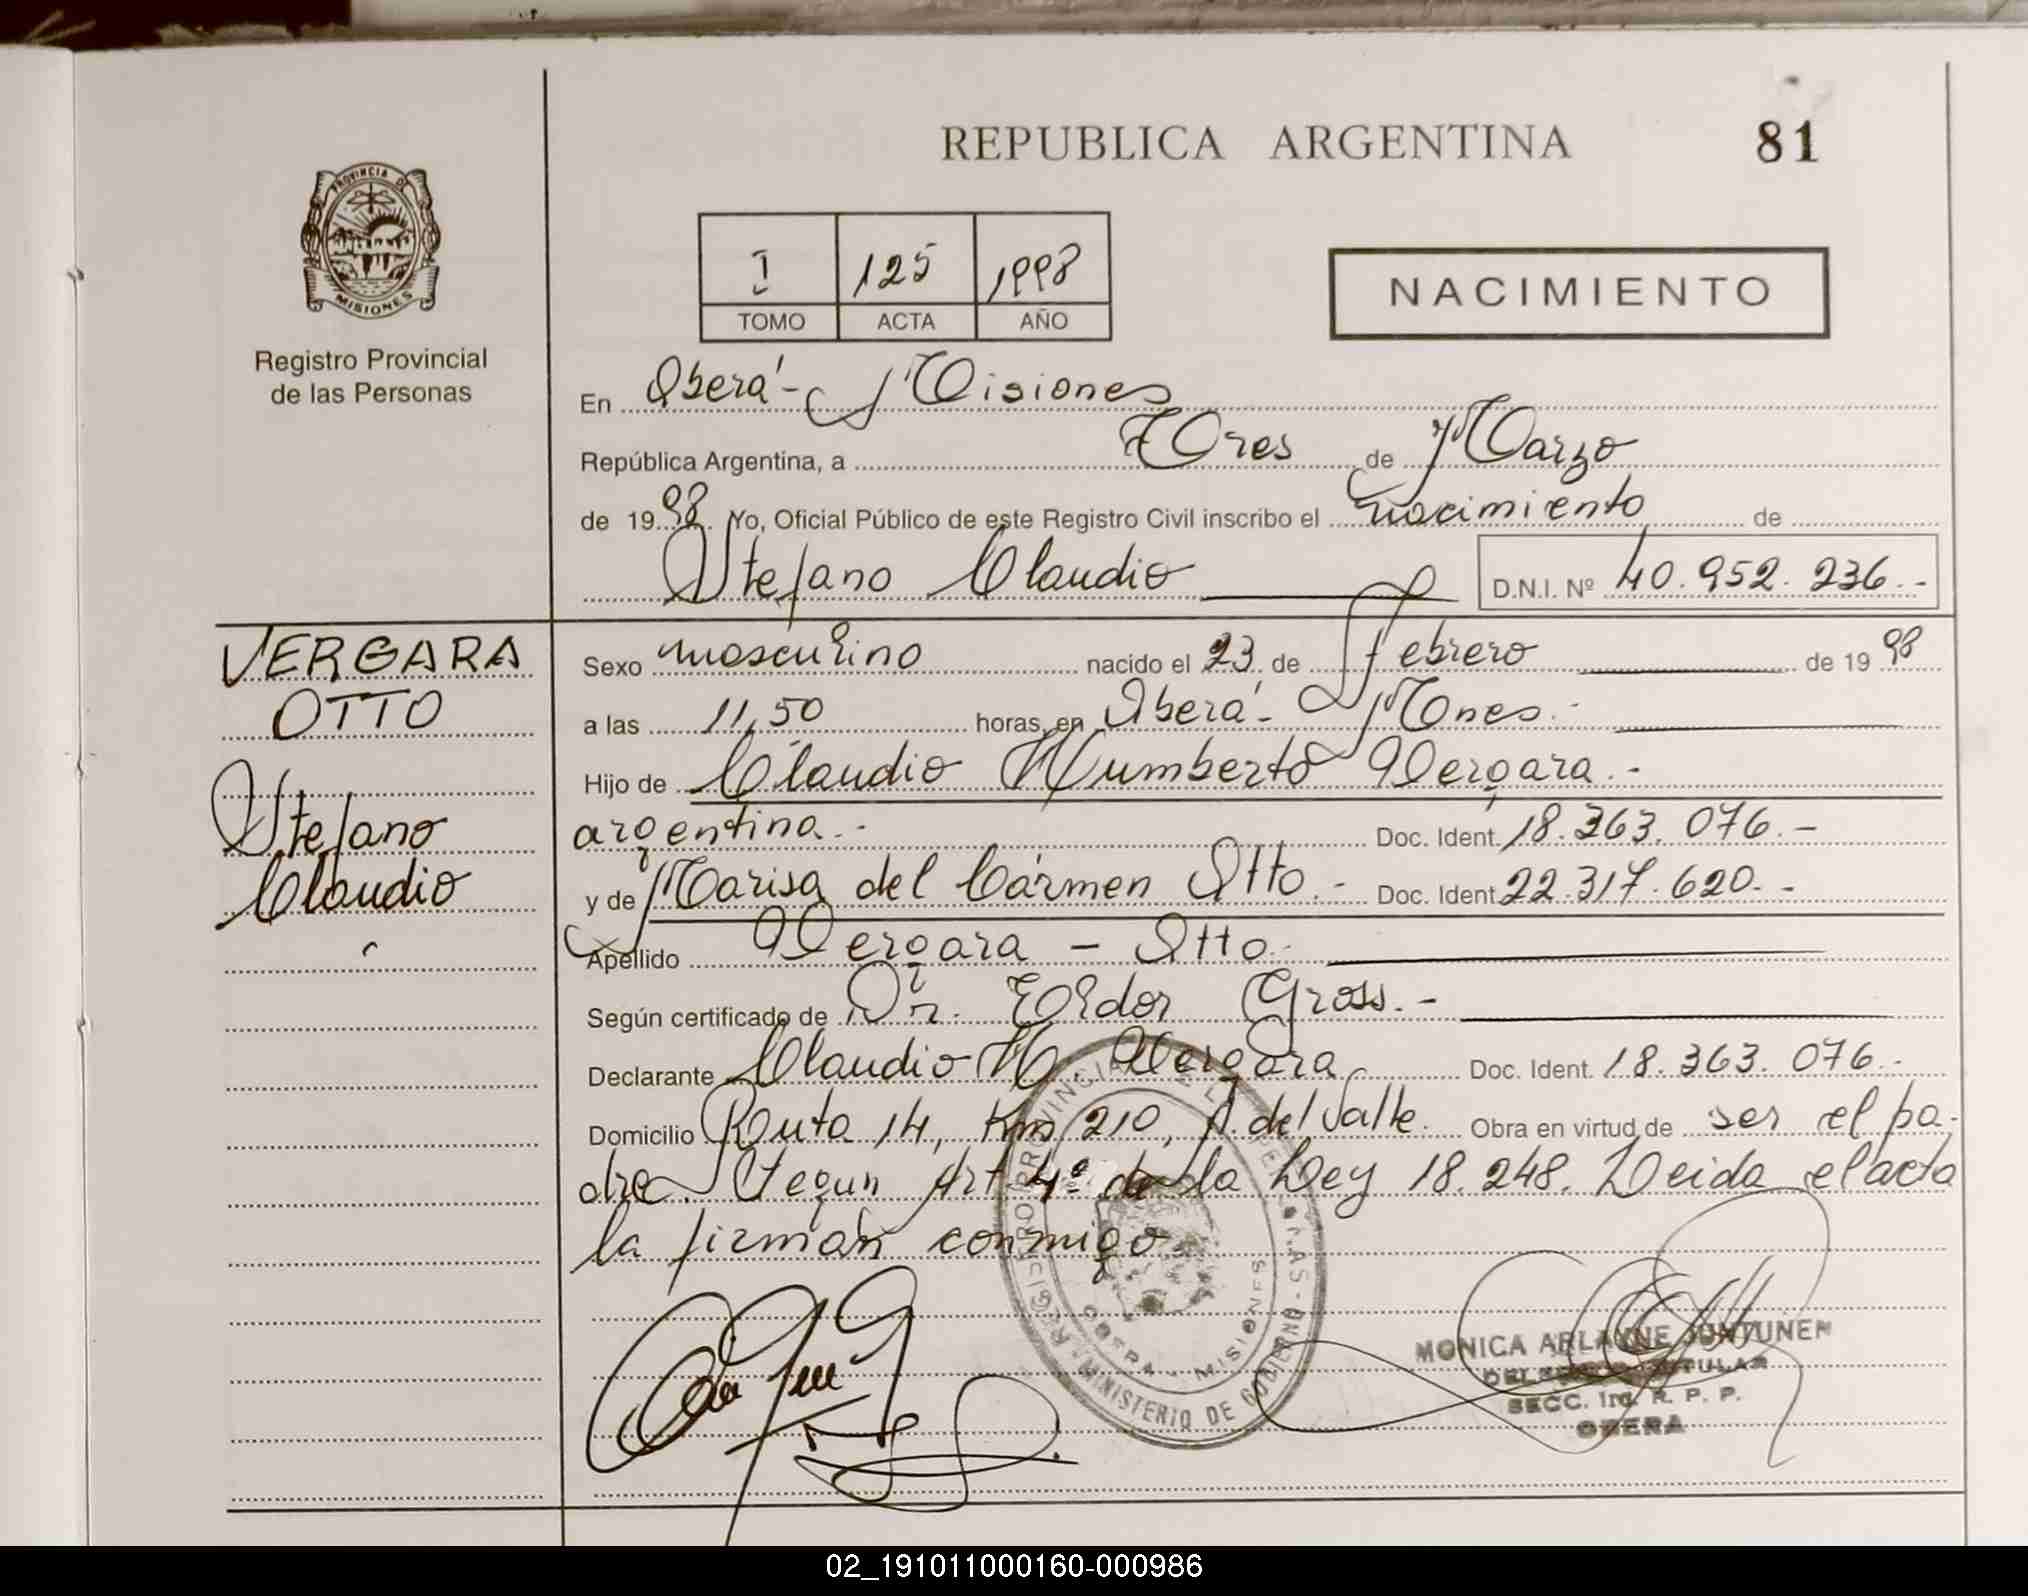 REPUBLICA ARGENTINA
81
PROVINCIA DE
MISIONES
Registro Provincial
de las Personas
I 125 1998
TOMO ACTA AÑO
NACIMIENTO
En Oberá - Misiones
República Argentina, a Tres de Marzo
de 1998. Yo, Oficial Público de este Registro Civil inscribo el nacimiento de
Stefano Claudio D.N.I. Nº 40.952.236.-
VERGARA
OTTO
Stefano
Claudio
Sexo masculino nacido el 23 de Febrero de 1998
a las 11,50 horas, en Oberá - Mones.-
Hijo de Claudio Humberto Vergara.-
argentina.- Doc. Ident. 18.363.076.-
y de Marisa del Cármen Otto.- Doc. Ident. 22.317.620.-
Apellido Vergara - Otto.-
Según certificado de Dr. Eldor Gross.-
Declarante Claudio H. Vergara Doc. Ident. 18.363.076.-
Domicilio Ruta 14, Km 210, A. del Valle. Obra en virtud de ser el pa-
dre. Segun Art 4º de la Ley 18.248. Leida el acta
la firman conmigo
REGISTRO PROVINCIAL DE LAS PERSONAS - MINISTERIO DE GOBIERNO
OBERA - MISIONES
MONICA ARLANNE JUNTUNEN
TITULAR
SECC. 1ra. R. P. P.
OBERA
02_191011000160-000986